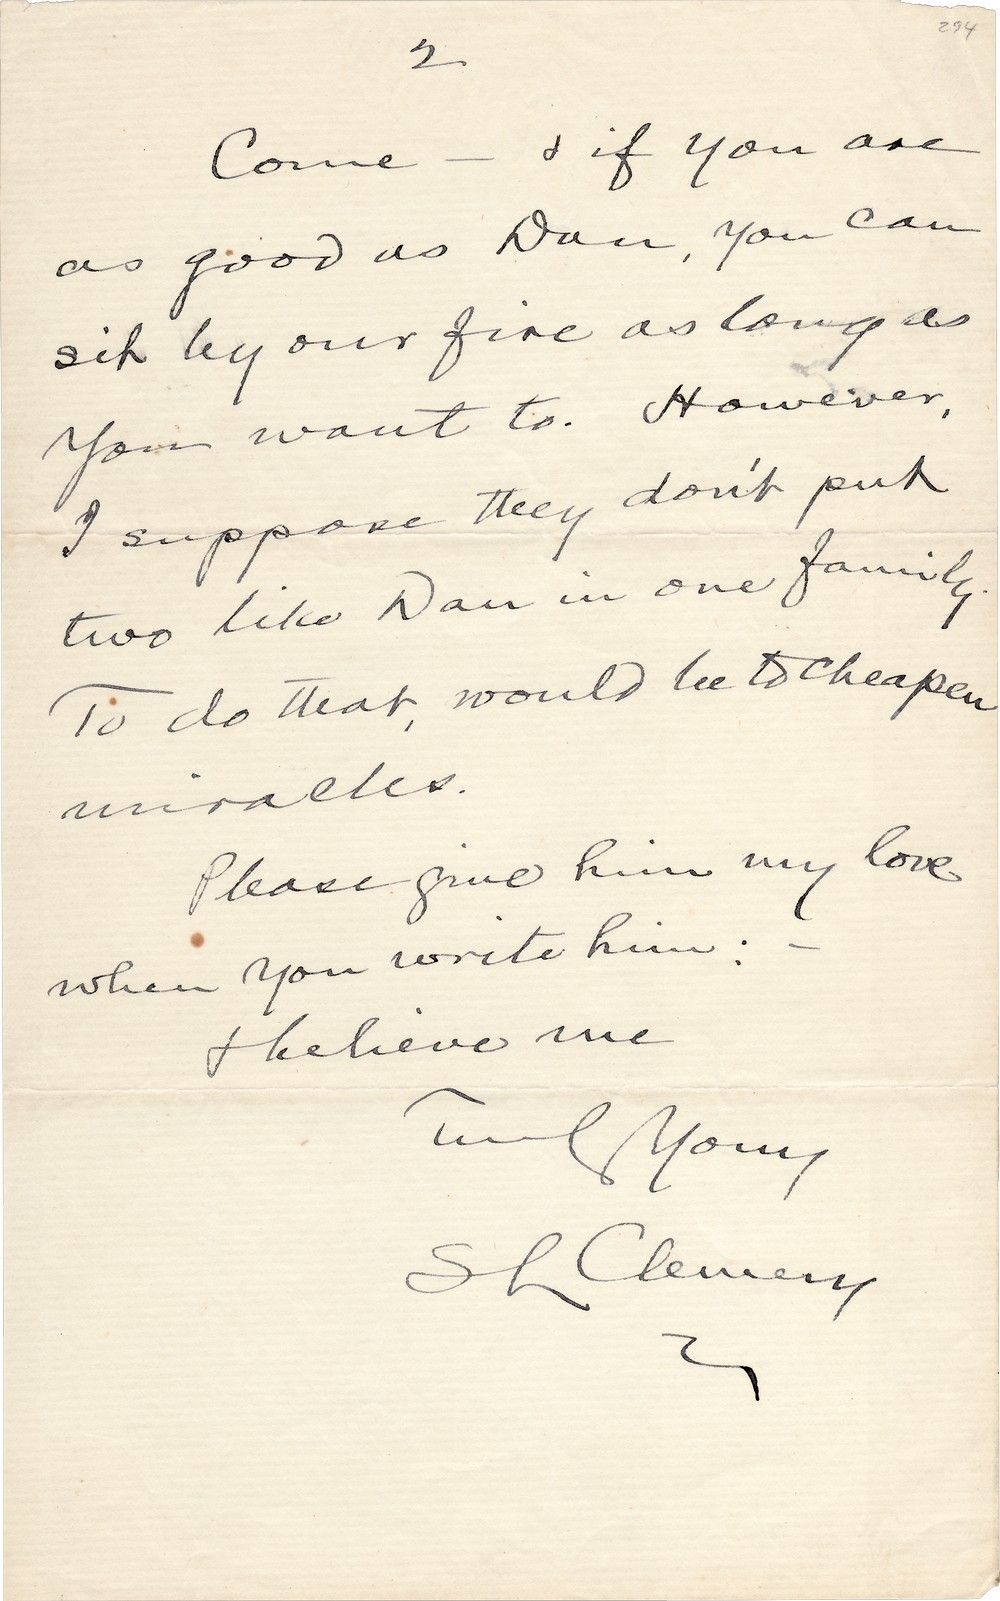 294
2
Come — & if you are
as good as Dan, you can
sit by our fire as long as
you want to. However,
I suppose they don't put
two like Dan in one family.
To do that, would be to cheapen
miracles.
Please give him my love
when you write him: —
& believe me
Truly Yours
S L Clemens